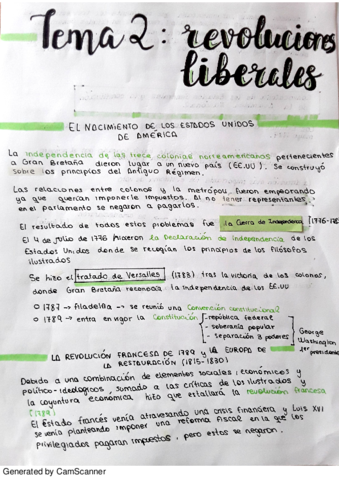 Tema 2: revoluciones
liberales
EL NACIMIENTO DE LOS ESTADOS UNIDOS
DE AMÉRICA
La independencia de las trece colonias norteamericanas pertenecientes
a Gran Bretaña dieron lugar a un nuevo país (EE.UU). Se construyó
sobre los principios del Antiguo Régimen.
Las relaciones entre colonos y la metrópoli fueron empeorando
ya que querían imponerle impuestos. Al no tener representantes
en el parlamento se negaron a pagarlos.
El resultado de todos estos problemas fue la Guerra de Independencia (1776-178
El 4 de julio de 1776 hicieron la Declaración de Independencia de los
Estados Unidos donde se recogían los principios de los filósofos
ilustrados
Se hizo el tratado de Versalles (1783) tras la victoria de los colonos,
donde Gran Bretaña reconocía la independencia de los EE.UU
o 1787 → Filadelfia → se reunió una Convención constitucional
o 1789 → entra en vigor la Constitución
- república federal
- soberanía popular
- separación de poderes
George
Washington
1er presidente
LA REVOLUCIÓN FRANCESA DE 1789 Y LA EUROPA DE
LA RESTAURACIÓN (1815-1830)
Debido a una combinación de elementos sociales, económicos y
político-ideológicos, sumado a las críticas de los ilustrados y
la coyuntura económica hizo que estallará la revolución francesa
(1789)
El estado francés venía atravesando una crisis financiera y Luis XVI
se venía planteando imponer una reforma fiscal en la que los
privilegiados pagaran impuestos, pero estos se negaron.
Generated by CamScanner